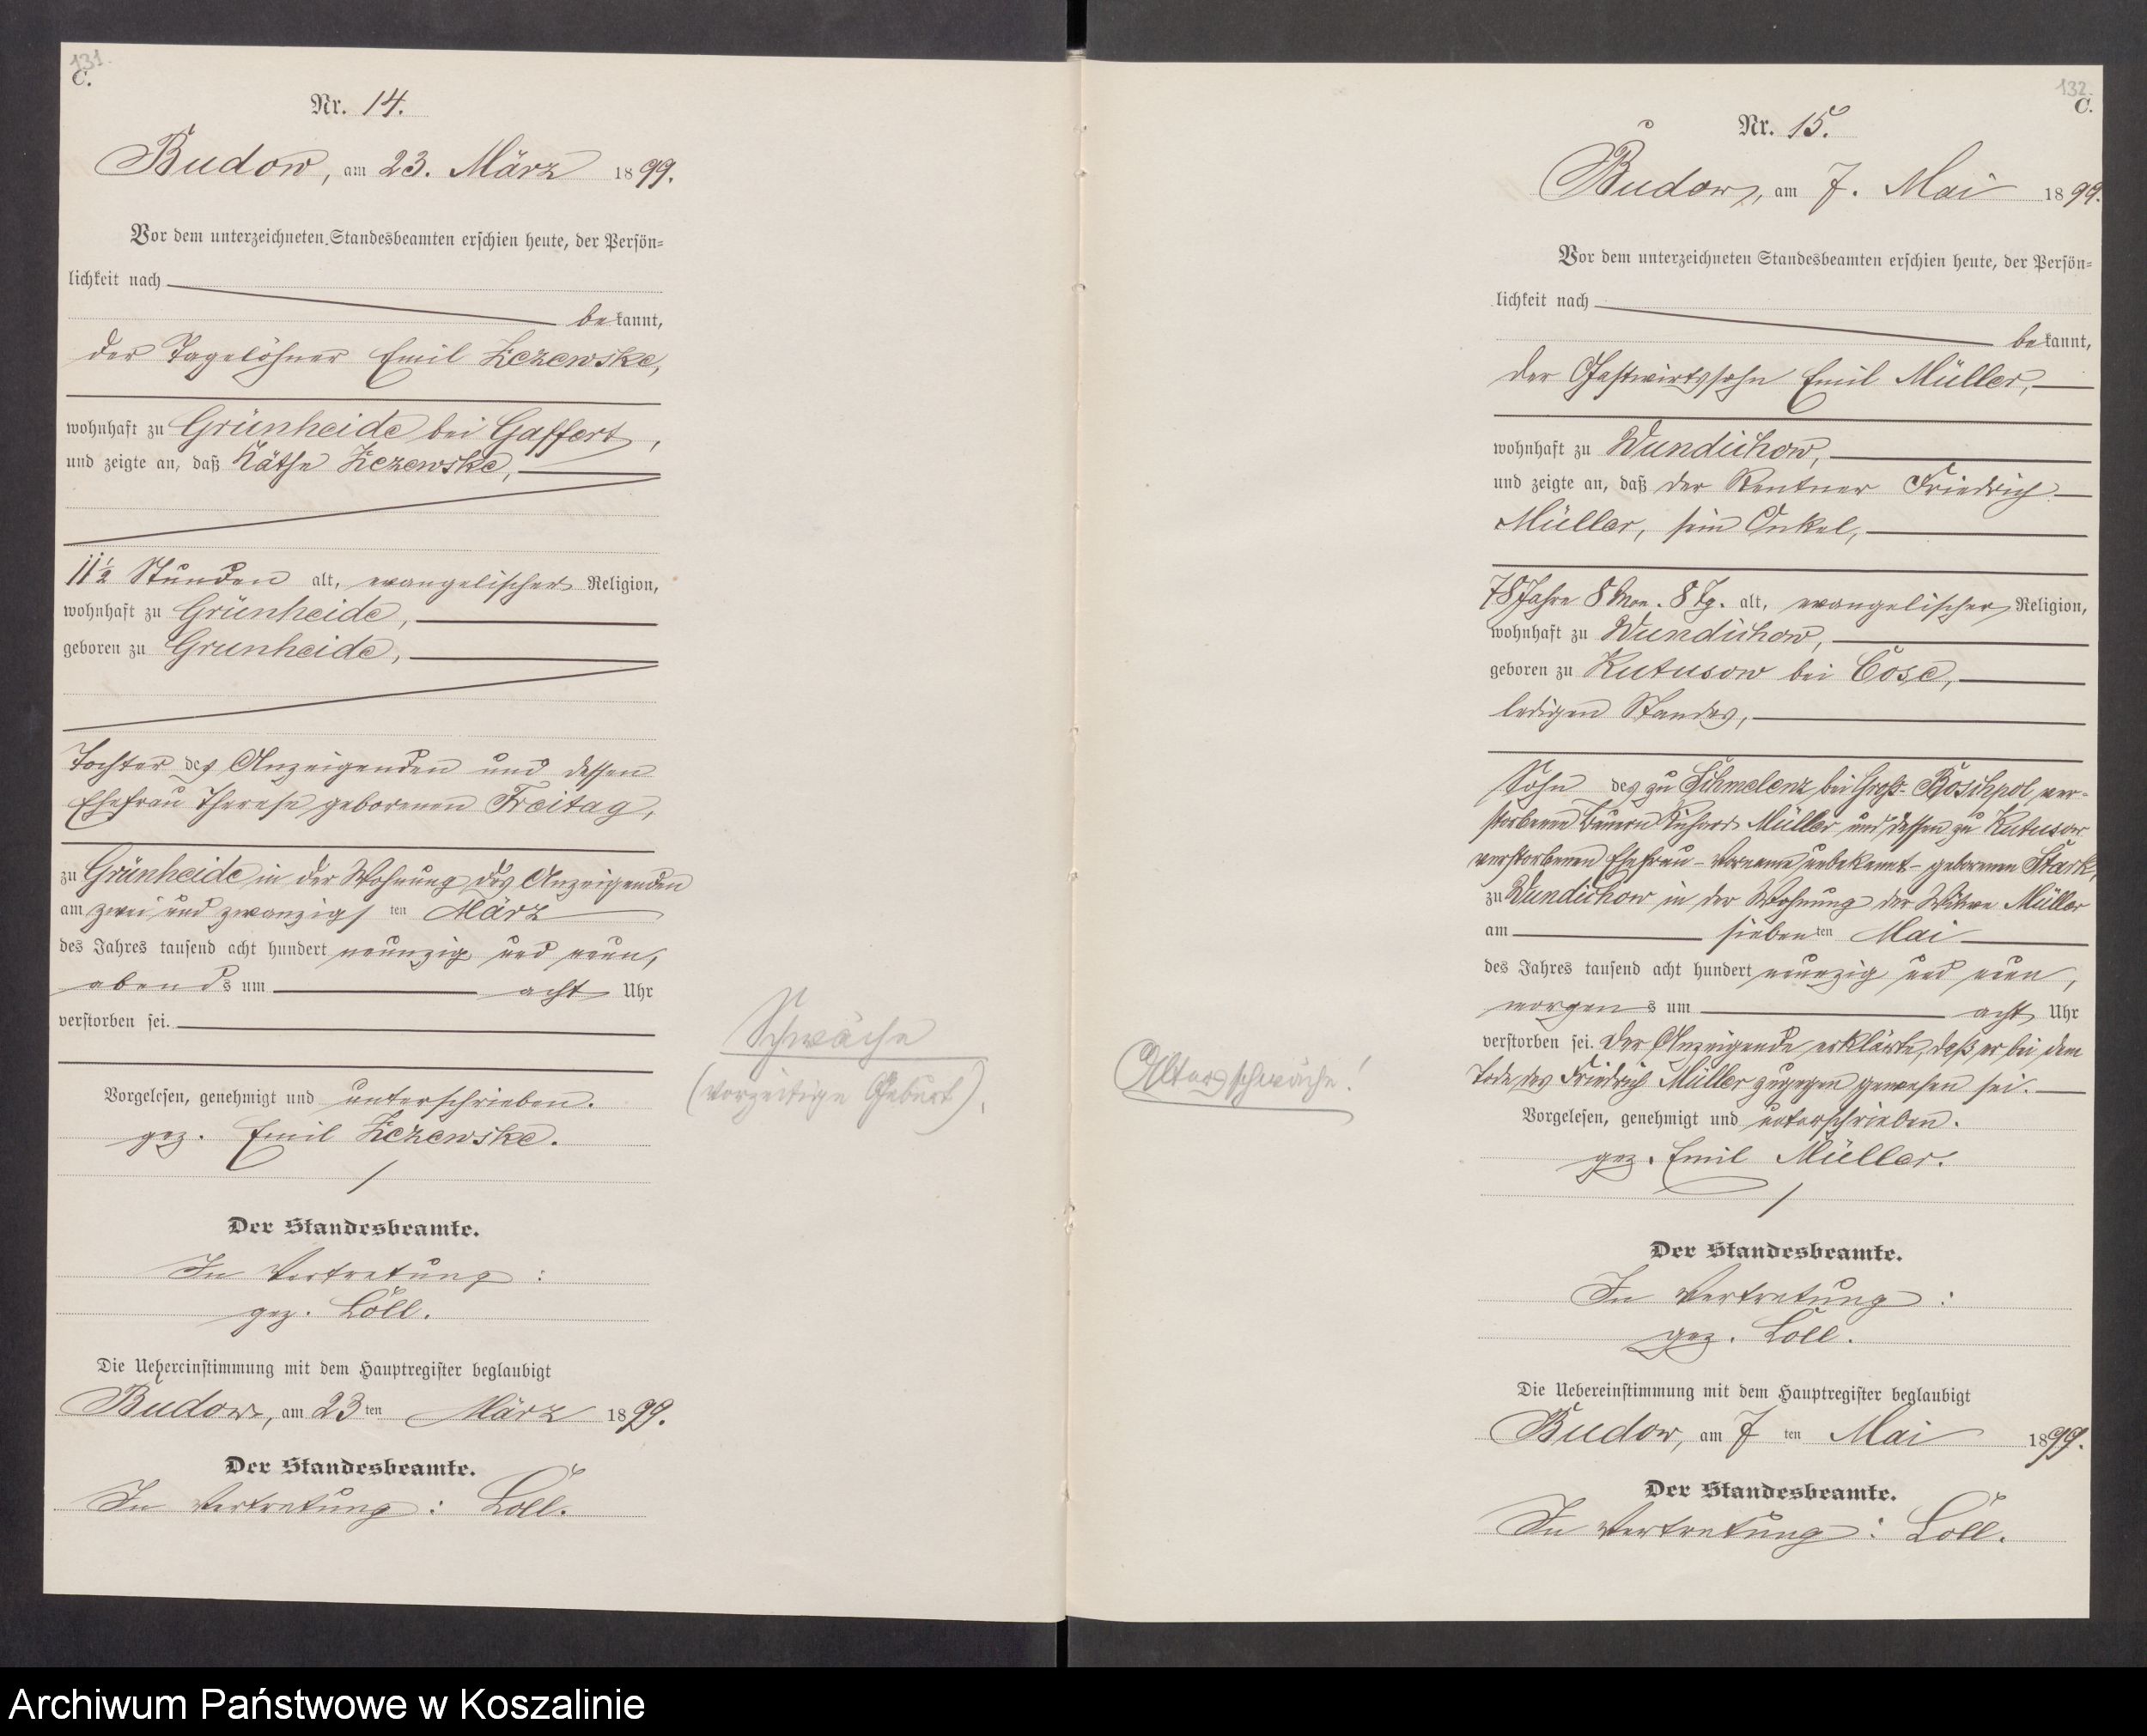 131.
C.
Nr. 14.
Budow, am 23. März 1899.
Vor dem unterzeichneten Standesbeamten erschien heute, der Persön=
lichkeit nach
bekannt,
der Tagelöhner Emil
wohnhaft zu Grünheide bei Gaffert,
und zeigte an, daß Käthe
11½ Stunden alt, evangelischer Religion,
wohnhaft zu Grünheide,
geboren zu Grünheide,
Tochter des Anzeigenden und dessen
Ehefrau Therese geborenen Freitag,
zu Grünheide in der Wohnung des Anzeigenden
am zwei und zwanzigsten März
des Jahres tausend acht hundert neunzig und neun,
abends um acht Uhr
verstorben sei.
Vorgelesen, genehmigt und unterschrieben.
gez. Emil
Der Standesbeamte.
In Vertretung:
gez. Löll.
Die Uebereinstimmung mit dem Hauptregister beglaubigt
Budow, am 23ten März 1899.
Der Standesbeamte.
In Vertretung: Löll.
Schwäche
(vorzeitige Geburt),
132.
C.
Nr. 15.
Budow, am 7. Mai 1899.
Vor dem unterzeichneten Standesbeamten erschien heute, der Persön=
lichkeit nach
bekannt,
der Gastwirtssohn Emil Müller,
wohnhaft zu Wundichow,
und zeigte an, daß der Rentner Friedrich
Müller, sein Onkel,
78 Jahre 8 Mon. 8 Tg. alt, evangelischer Religion,
wohnhaft zu Wundichow,
geboren zu Kutusow bei Cose,
ledigen Standes,
Sohn des zu Schmelenz bei Groß-Boschpol ver-
storbenen Bauern Richard Müller und dessen zu Kutusow
verstorbenen Ehefrau - Vorname unbekannt - geborenen Stark,
zu Wundichow in der Wohnung der Witwe Müller
am siebenten Mai
des Jahres tausend acht hundert neunzig und neun,
morgens um acht Uhr
verstorben sei. Der Anzeigende erklärte, daß er bei dem
Tode des Friedrich Müller zugegen gewesen sei.
Vorgelesen, genehmigt und unterschrieben.
gez. Emil Müller.
Der Standesbeamte.
In Vertretung:
gez. Löll.
Die Uebereinstimmung mit dem Hauptregister beglaubigt
Budow, am 7ten Mai 1899.
Der Standesbeamte.
In Vertretung: Löll.
Altersschwäche!
Archiwum Państwowe w Koszalinie